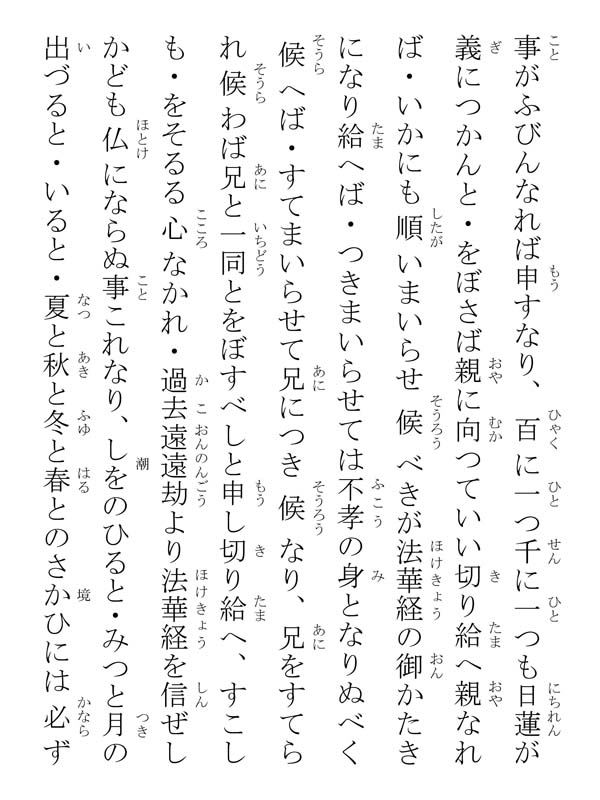 事がふびんなれば申すなり、百に一つ千に一つも日蓮が
義につかんと・をぼさば親に向つていい切り給へ親なれ
ば・いかにも順いまいらせ候べきが法華経の御かたき
になり給へば・つきまいらせては不孝の身となりぬべく
候へば・すてまいらせて兄につき候なり、兄をすてら
れ候わば兄と一同とをぼすべしと申し切り給へ、すこし
も・をそるる心なかれ・過去遠遠劫より法華経を信ぜし
かども仏にならぬ事これなり、しをのひると・みつと月の
出づると・いると・夏と秋と冬と春とのさかひには必ず